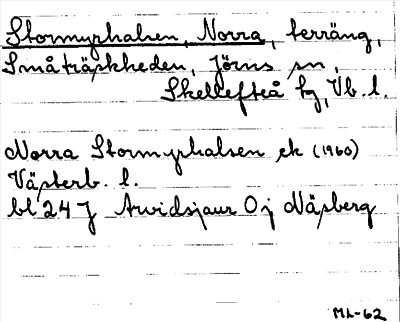 Stormyrhalsen, Norra, terräng,
Småträskheden, Jörns sn,
Skellefteå kg, Vb. l.
Norra Stormyrhalsen ek (1960)
Västerb. l.
bl 24 J Arvidsjaur Oj Näsberg
ML-62